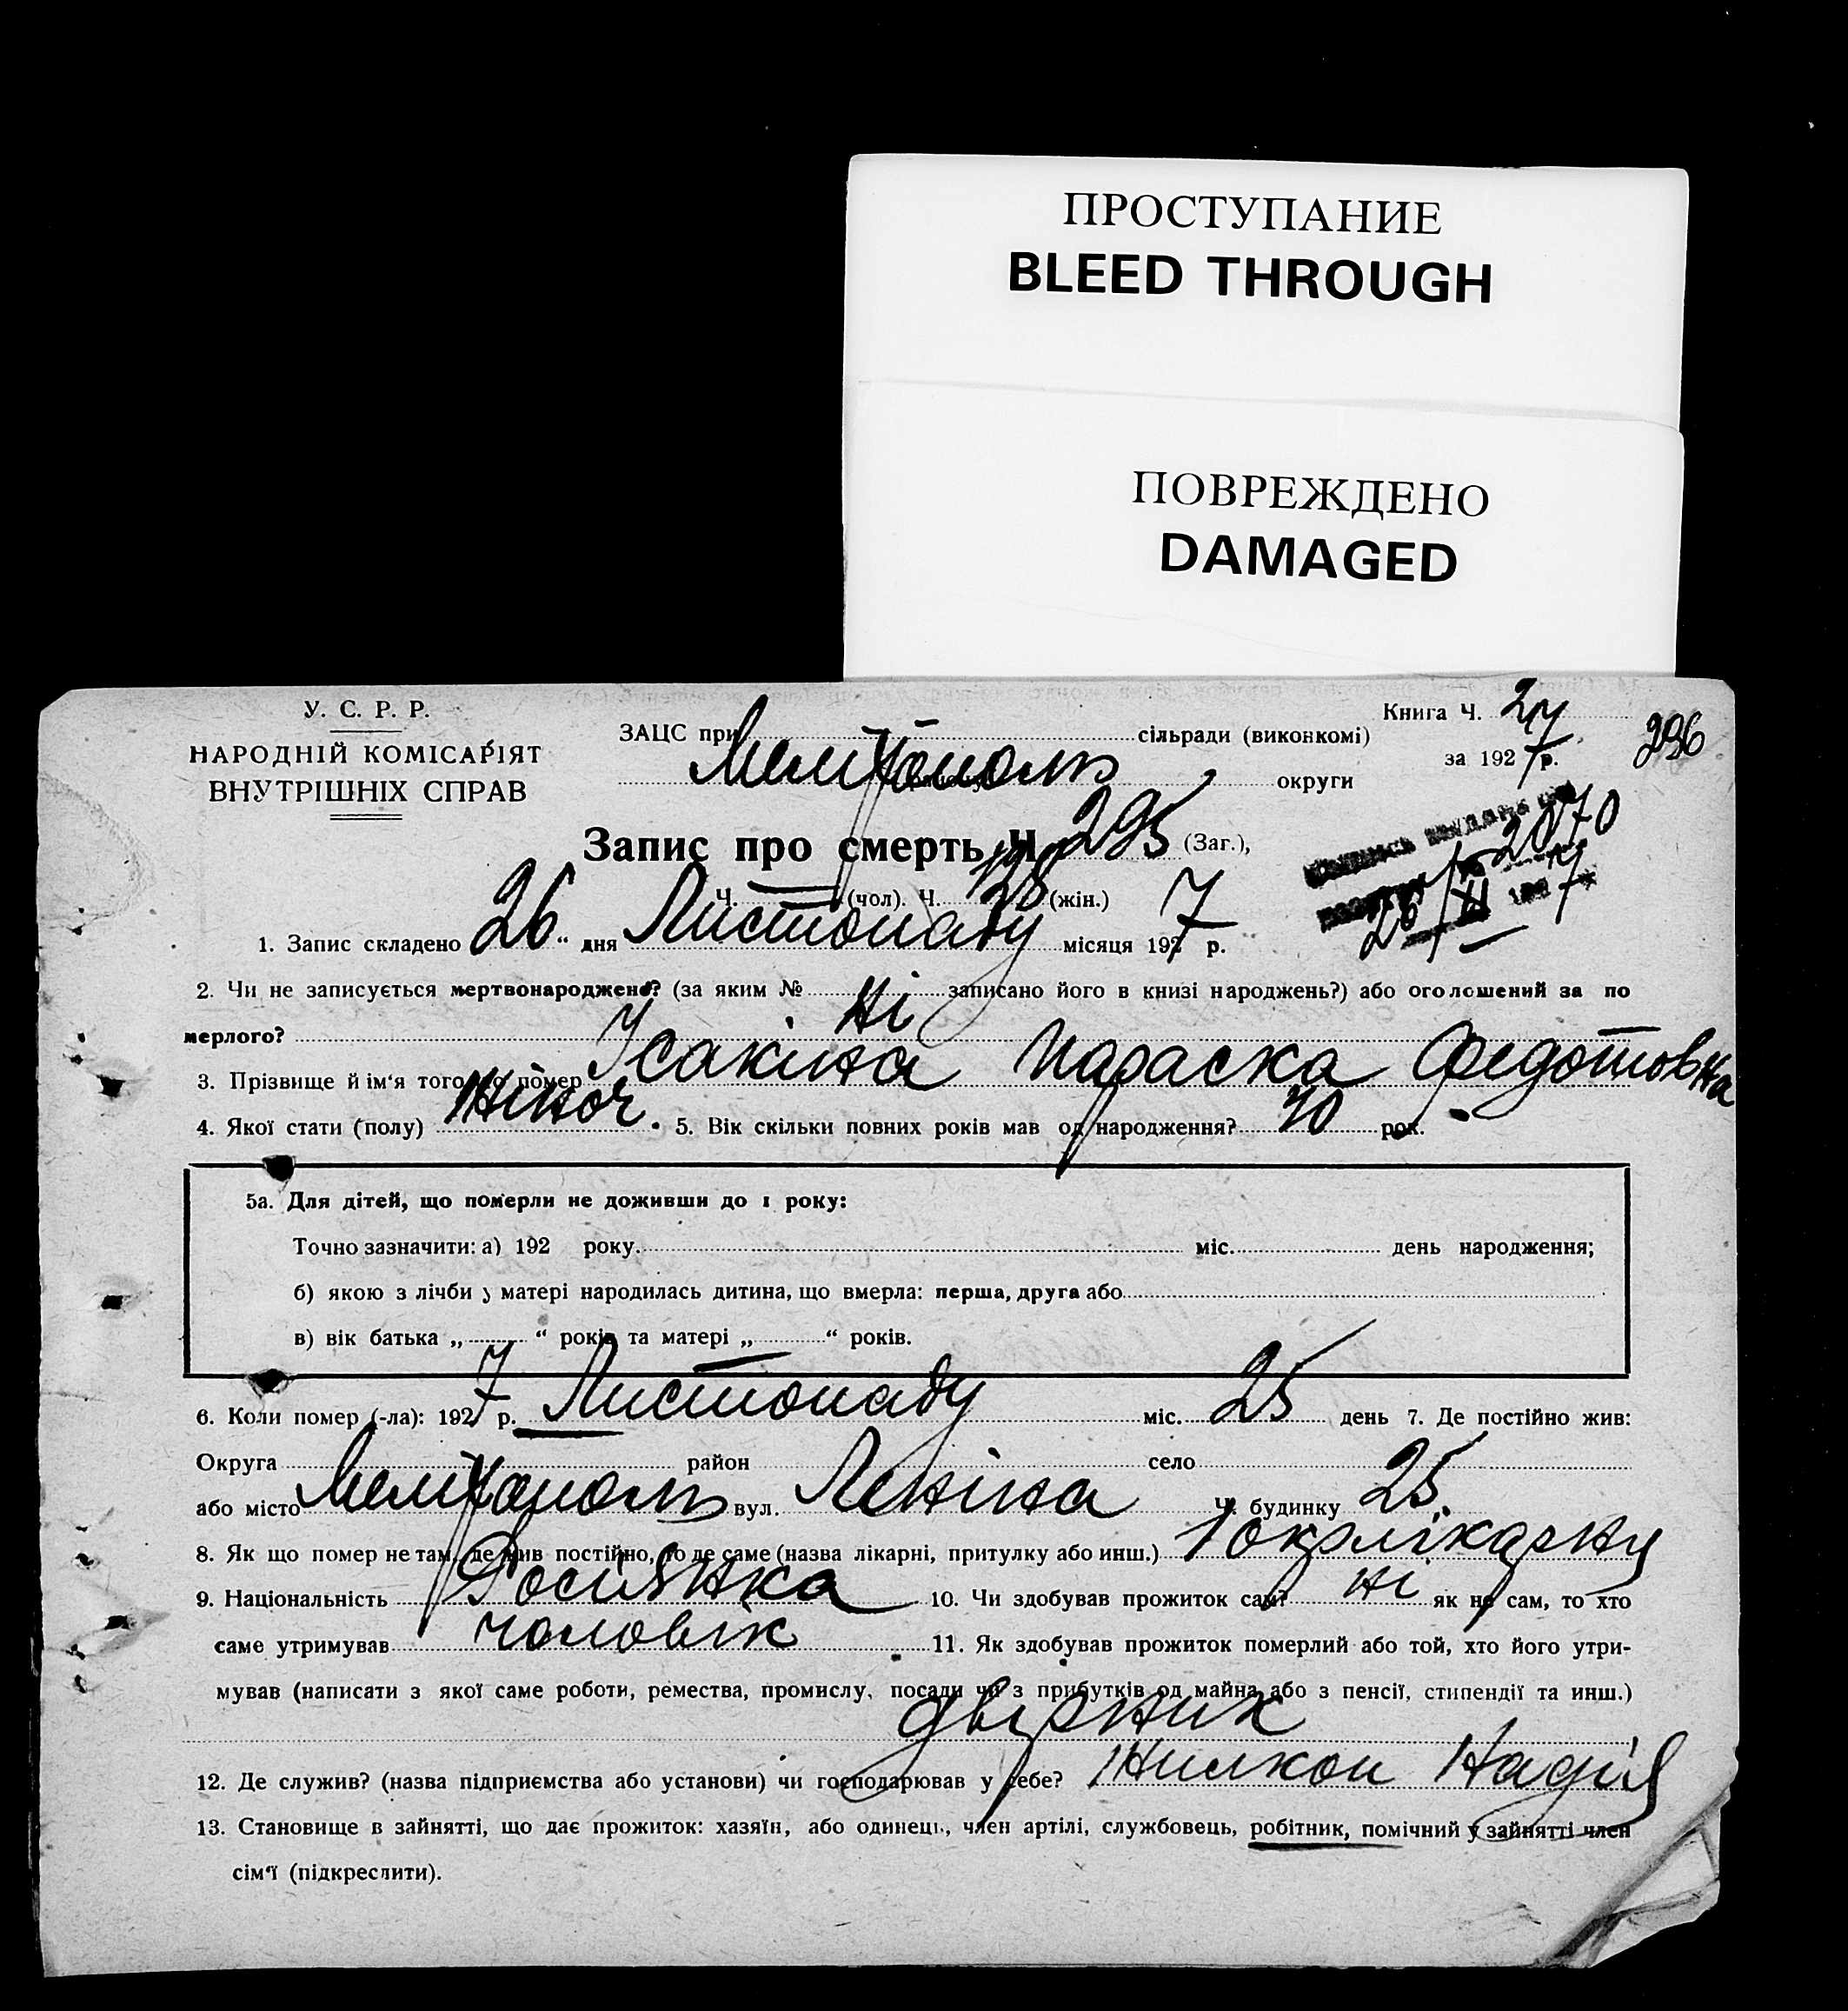 ПРОСТУПАНИЕ
BLEED THROUGH
ПОВРЕЖДЕНО
DAMAGED
У. С. Р. Р.
НАРОДНІЙ КОМІСАРІЯТ
ВНУТРІШНІХ СПРАВ
ЗАЦС при сільради (виконкомі)
Мелітополь округи
Книга Ч. 24
за 1927 р.
296
Запис про смерть Ч 295 (Заг.),
Ч. — (чол). Ч. 128 (жін.)
2070
26/XI 1927
1. Запис складено 26 " дня Листопаду місяця 1927 р.
2. Чи не записується мертвонароджене? (за яким № Ні записано його в книзі народжень?) або оголошений за по
мерлого?
3. Прізвище й ім'я того, що помер Ісакіна Параска Федотовна
4. Якої стати (полу) жіноч. 5. Вік скільки повних років мав од народження? 70 рок.
5а. Для дітей, що померли не доживши до 1 року:
Точно зазначити: а) 192 року міс. день народження;
б) якою з лічби у матері народилась дитина, що вмерла: перша, друга або
в) вік батька „ “ років та матері „ “ років.
6. Коли помер (-ла): 1927 р. Листопаду міс. 25 день 7. Де постійно жив:
Округа район село
або місто Мелітополь вул. Леніна Ч. будинку 25.
8. Як що помер не там, де жив постійно, то де саме (назва лікарні, притулку або инш.) 1 окрлікарну
9. Національність Росіянка 10. Чи здобував прожиток сам? ні як не сам, то хто
саме утримував чоловік 11. Як здобував прожиток померлий або той, хто його утри-
мував (написати з якої саме роботи, ремества, промислу, посади чи з прибутків од майна або з пенсії, стипендії та инш.)
двірник
12. Де служив? (назва підприємства або установи) чи господарював у себе? Жилкоп Надія
13. Становище в зайнятті, що дає прожиток: хазяїн, або одинець, член артілі, службовець, робітник, помічний у зайнятті член
сім'ї (підкреслити).